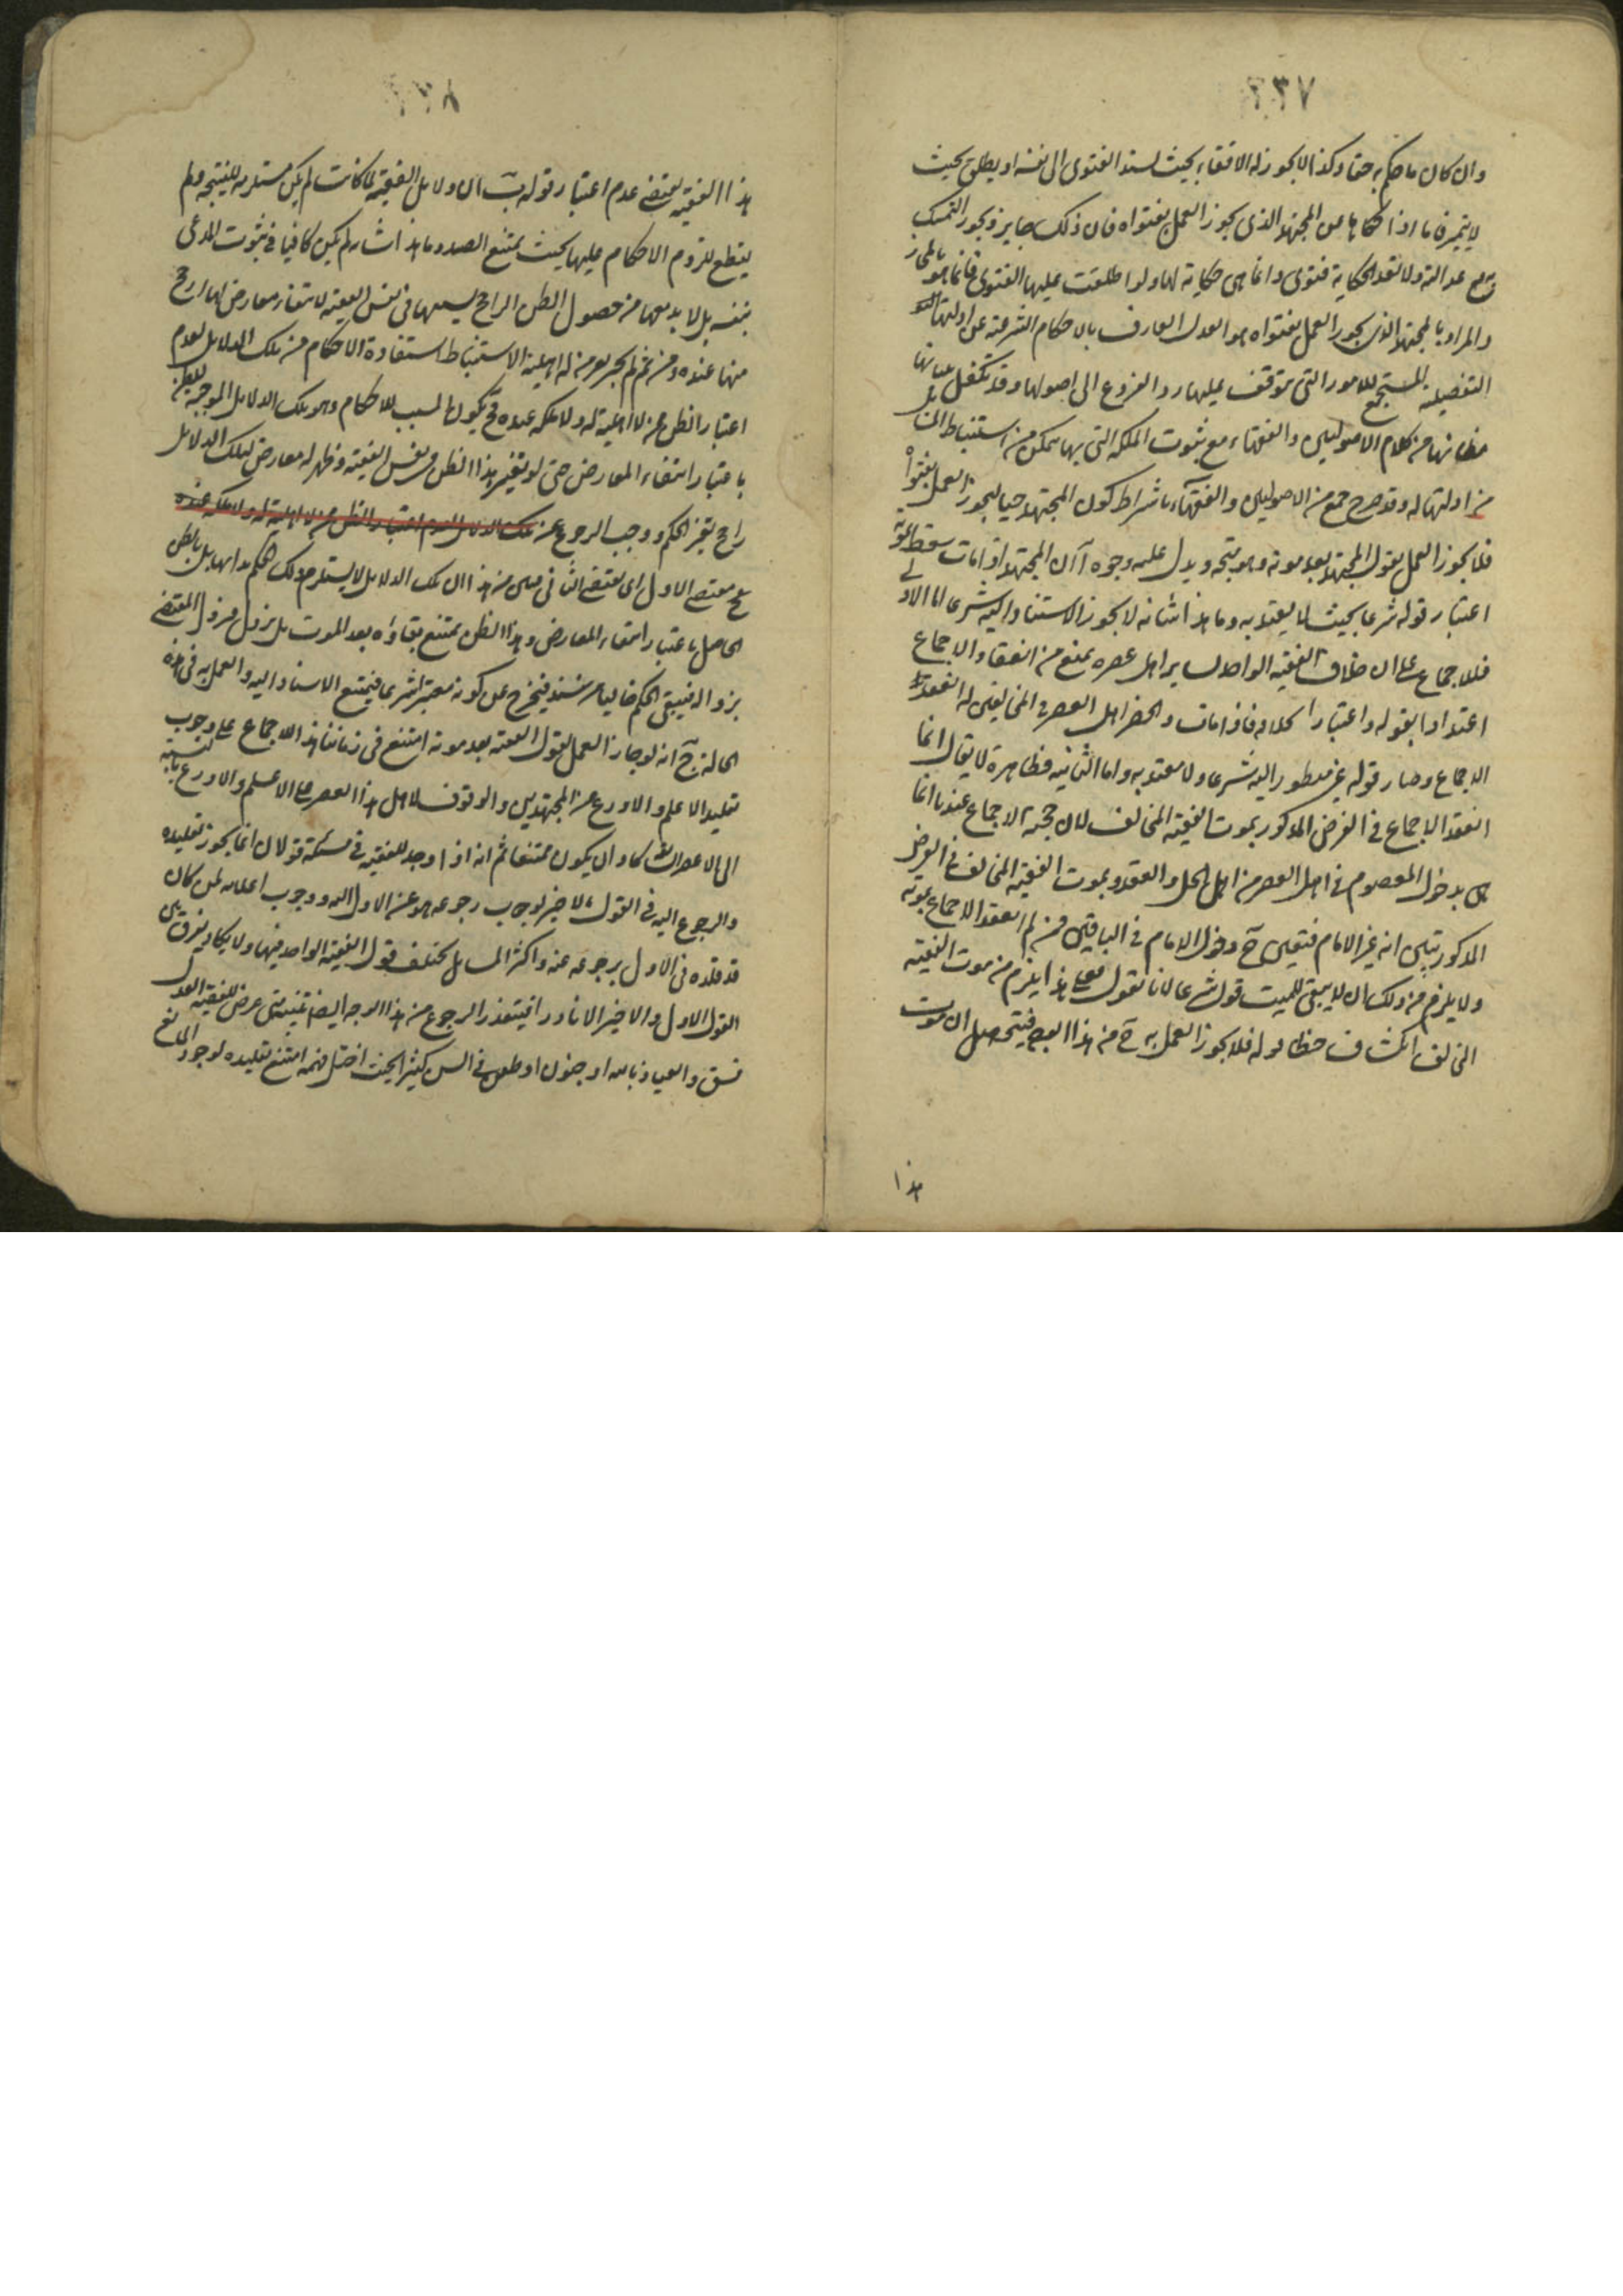 ٢٣٧
وان كان ما حكم به حقا وكذا لا يجوز له الافتاء بحيث يسند الفتوى الى نفسه او يطلق بحيث
لا يتميز فاما اذا حكاها عن المجتهد الذي يجوز العمل بفتواه فان ذلك جايز ويجوز التمسك
مع عدالته ولا تعد الحكاية فتوى وانما هي حكاية لها ولو اطلقت عليها الفتوى فانما هو بالمجاز
والمراد بالمجتهد الذي يجوز العمل بفتواه هو العدل العارف بالاحكام الشرعية عن ادلتها
التفصيلية المستجمع للامور التي يتوقف عليها رد الفروع الى اصولها وقد تكفل ببيانها
مظانها من كلام الاصوليين والفقهاء مع ثبوت الملكة التي بها يتمكن من استنباط المسائل
من ادلتها له وقد صرح جمع من الاصوليين والفقهاء باشتراط كون المجتهد حيا ليجوز العمل بفتواه
فلا يجوز العمل بقول المجتهد بعد موته وهو متجه ويدل عليه وجوه آ ان المجتهد اذا مات سقط بموته
اعتبار قوله شرعا بحيث لا يعتد به وما هذا شانه لا يجوز الاستناد اليه شرعا اما الاولى
فللاجماع على ان خلاف الفقيه الواحد لساير اهل عصره يمنع من انعقاد الاجماع
اعتدادا بقوله واعتبارا بخلافه فاذا مات وانحصر اهل العصر في المخالفين له انعقد
الاجماع وصار قوله غير منظور اليه شرعا ولا معتد به واما الثانية فظاهرة لا يقال انما
انعقد الاجماع في الفرض المذكور بموت الفقيه المخالف لان حجية الاجماع عندنا انما
هي بدخول المعصوم في اهل العصر من اهل الحل والعقد وبموت الفقيه المخالف في الفرض
المذكور تبين انه غير الامام فتعين ح دخول الامام في الباقين فمن ثم انعقد الاجماع بموته
ولا يلزم من ذلك ان لا يبقى للميت قول شرعا لانا نقول فعلى هذا يلزم من موت الفقيه
المخالف انكشاف خطا قوله فلا يجوز العمل به ح من هذا الوجه فيتحصل ان موت
هذا
٢٣٨
هذا الفقيه يقتضي عدم اعتبار قوله ب ان دلايل الفقيه لما كانت لم يكن مستلزمة للنتيجة ولم
يقطع بلزوم الاحكام عليها بحيث يمتنع الصد وما هذا شانه لم يكن كافيا في ثبوت المدعى
بنفسه بل لا بد معها من حصول الظن الراجح بسببها في نفس الفقيه لانتفاء معارض لها ارجح
منها عنده ومن ثم لم يجز لغير من له اهلية الاستنباط استفادة الاحكام من تلك الدلايل لعدم
اعتبار الظن ممن لا اهلية له ولا ملكة عنده فح يكون السبب للاحكام وهو تلك الدلايل الموجبة للظن
باعتبار انتفاء المعارض حتى لو تغير هذا الظن في نفس الفقيه وظهر له معارض لتلك الدلايل
راجح تغير الحكم ووجب الرجوع عن تلك الدلايل لعدم اعتبار الظن ممن لا اهلية له ولا ملكة عنده
عن مقتضى الاول الى مقتضى الثاني فتبين من هذا ان تلك الدلايل لا يستلزم ذلك الحكم بذاتها بل بالظن
الحاصل باعتبار انتفاء المعارض وهذا الظن يمتنع بقاؤه بعد الموت بل يزول فيزول المقتضي
بزواله فيبقى الحكم خاليا عن سند فيخرج عن كونه معتبرا شرعا فيمتنع الاستناد اليه والعمل به في هذه
الحالة ج انه لو جاز العمل بقول الفقيه بعد موته امتنع في زماننا هذا للاجماع على وجوب
تقليد الاعلم والاورع من المجتهدين والوقوف لاهل هذا العصر على الاعلم والاورع بالنسبة
الى الاعصار السابقة كاد ان يكون ممتنعا ثم انه اذا وجد للفقيه في مسئلة قولان انما يجوز تقليده
والرجوع اليه في القول الاخير لوجوب رجوعه هو عن الاول اليه ووجوب اعلامه لمن كان
قد قلده في الاول برجوعه عنه واكثر المسايل يختلف قول الفقيه الواحد فيها ولا يكاد يفرق بين
القول الاول والاخير الا نادرا فيتعذر الرجوع من هذا الوجه ايضا تنبيه متى عرض للفقيه العدل
فسق والعياذ بالله او جنون او طعن في السن كثيرا بحيث اختل فهمه امتنع تقليده لوجود المانع